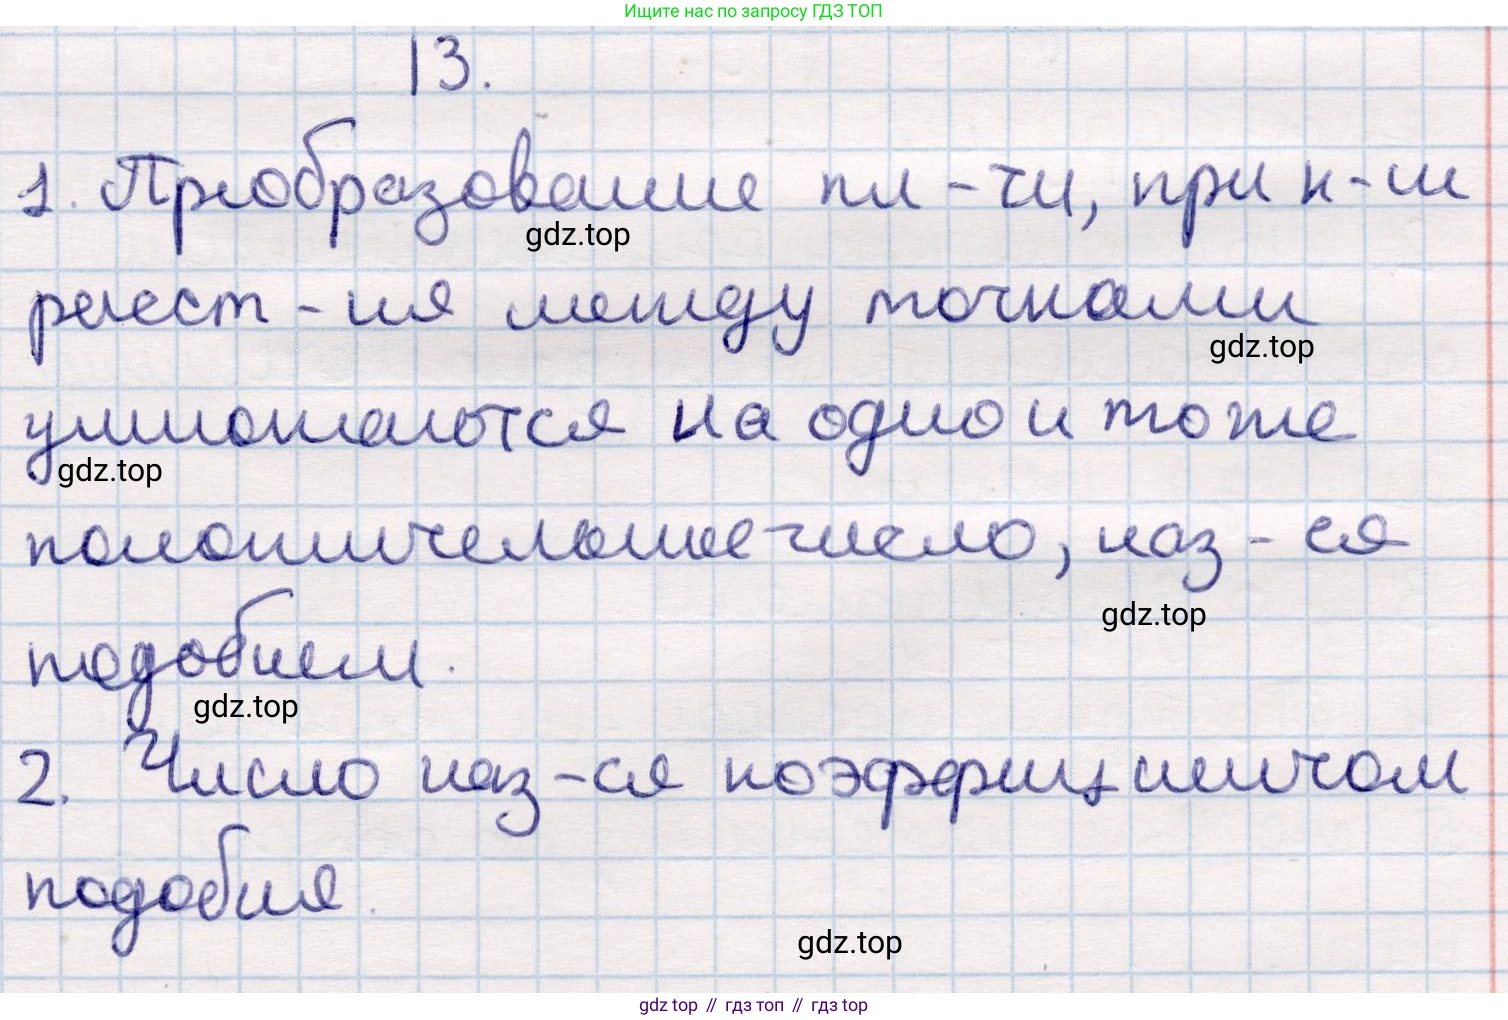 Ищите нас по запросу ГДЗ ТОП
13.
1. Преобразование пл-ти, при к-ш
gdz.top
расст-ия между точками
gdz.top
умножаются на одно и тоже
gdz.top
положительное число, наз-ся
gdz.top
подобием.
gdz.top
2. Число наз-ся коэффициентом
подобия.
gdz.top
gdz top // гдз топ // гдз top